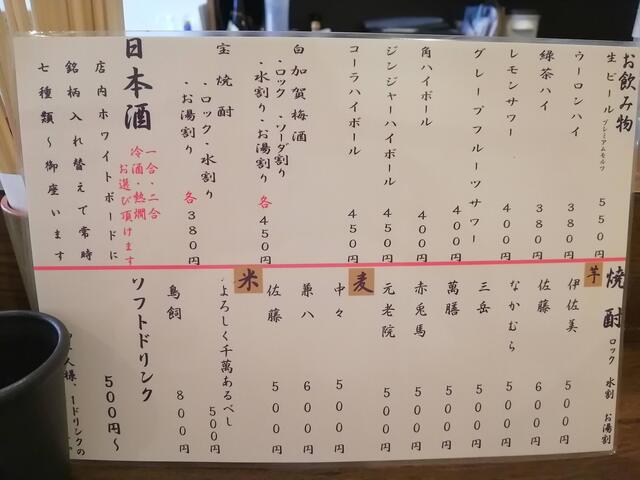 お飲み物
生ビール プレミアムモルツ 550円
ウーロンハイ 380円
緑茶ハイ 380円
レモンサワー 400円
グレープフルーツサワー 400円
角ハイボール 400円
ジンジャーハイボール 450円
コーラハイボール 450円
白加賀梅酒
・ロック・ソーダ割り
・水割り・お湯割り 各450円
宝焼酎
・ロック・水割り
・お湯割り 各380円
日本酒
一合・二合
冷酒・熱燗
お選び頂けます
店内ホワイトボードに
銘柄入れ替えで常時
七種類〜御座います
焼酎 ロック 水割 お湯割
芋
伊佐美 500円
佐藤 600円
なかむら 500円
三岳 500円
萬膳 500円
赤兎馬 500円
元老院 500円
麦
中々 500円
兼八 600円
佐藤 500円
米
よろしく千萬あるべし 500円
鳥飼 800円
ソフトドリンク
500円〜
人様、1ドリンクの